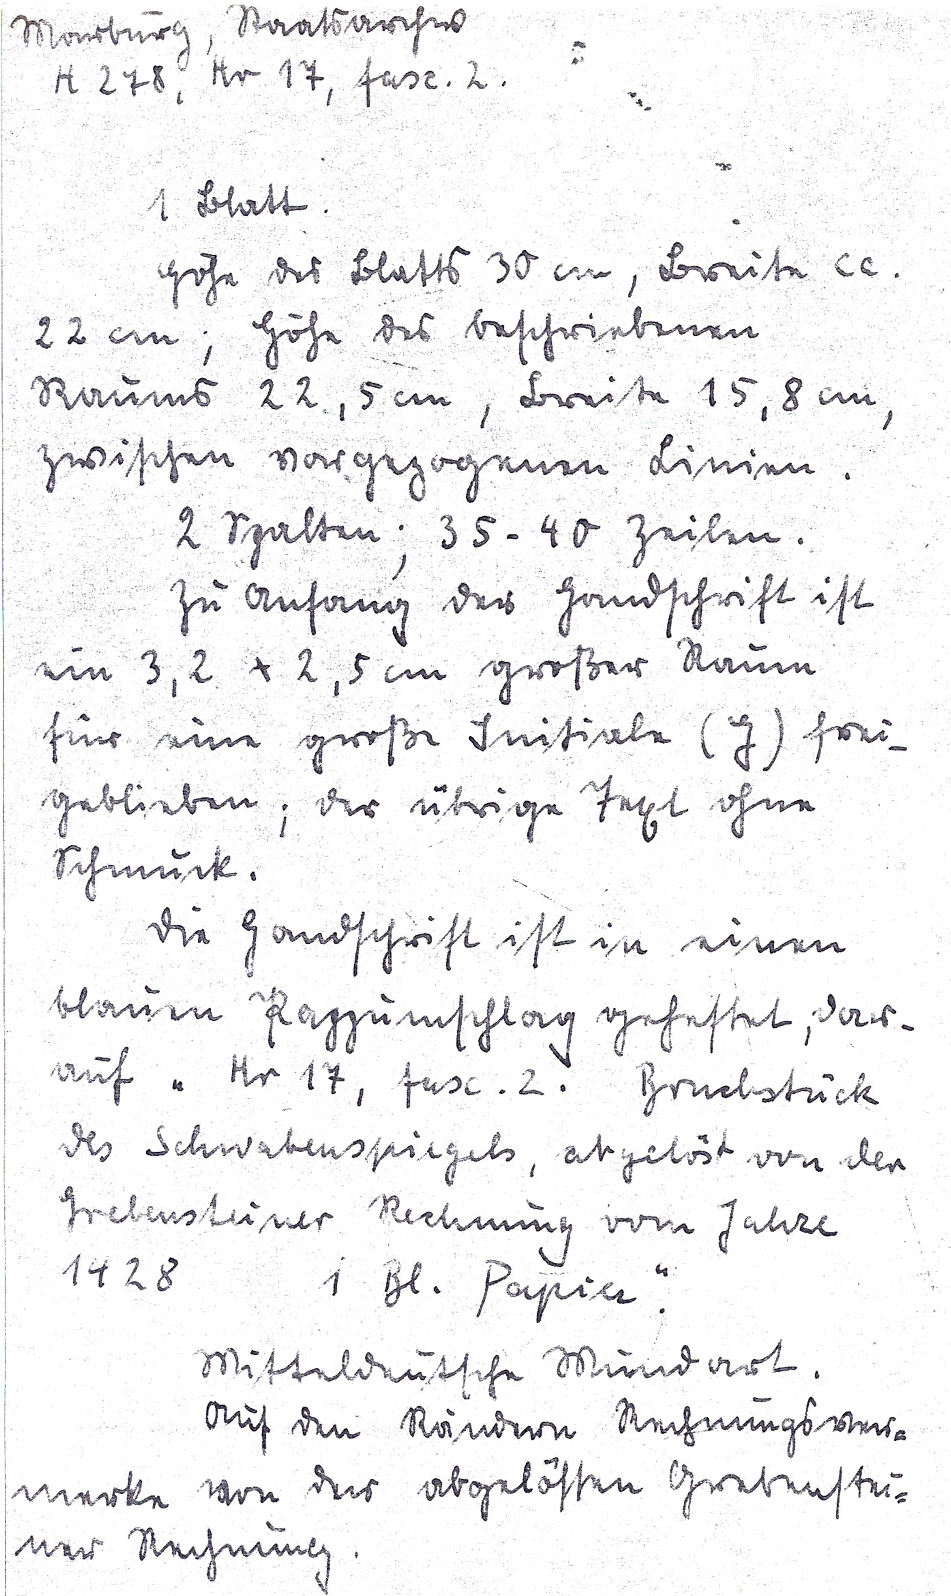 Marburg, Staatsarchiv
H 278, Nr 17, fasc. 2.
1 Blatt.
Höhe des Blatts 30 cm, Breite cc.
22 cm; Höhe des beschriebenen
Raums 22,5 cm, Breite 15,8 cm,
zwischen vorgezogenen Linien.
2 Spalten; 35-40 Zeilen.
Zu Anfang der Handschrift ist
ein 3,2 x 2,5 cm großer Raum
für eine große Initiale (G) frei-
geblieben; der übrige Text ohne
Schmuck.
Die Handschrift ist in einen
blauen Pappumschlag geheftet, dar-
auf „ Nr 17, fasc. 2. Bruchstück
des Schwabenspiegels, abgelöst von der
Grebensteiner Rechnung vom Jahre
1428 1 Bl. Papier“.
Mitteldeutsche Mundart.
Auf den Rändern Rechnungsver-
merke von der abgelössen Grebenstei-
ner Rechnung.